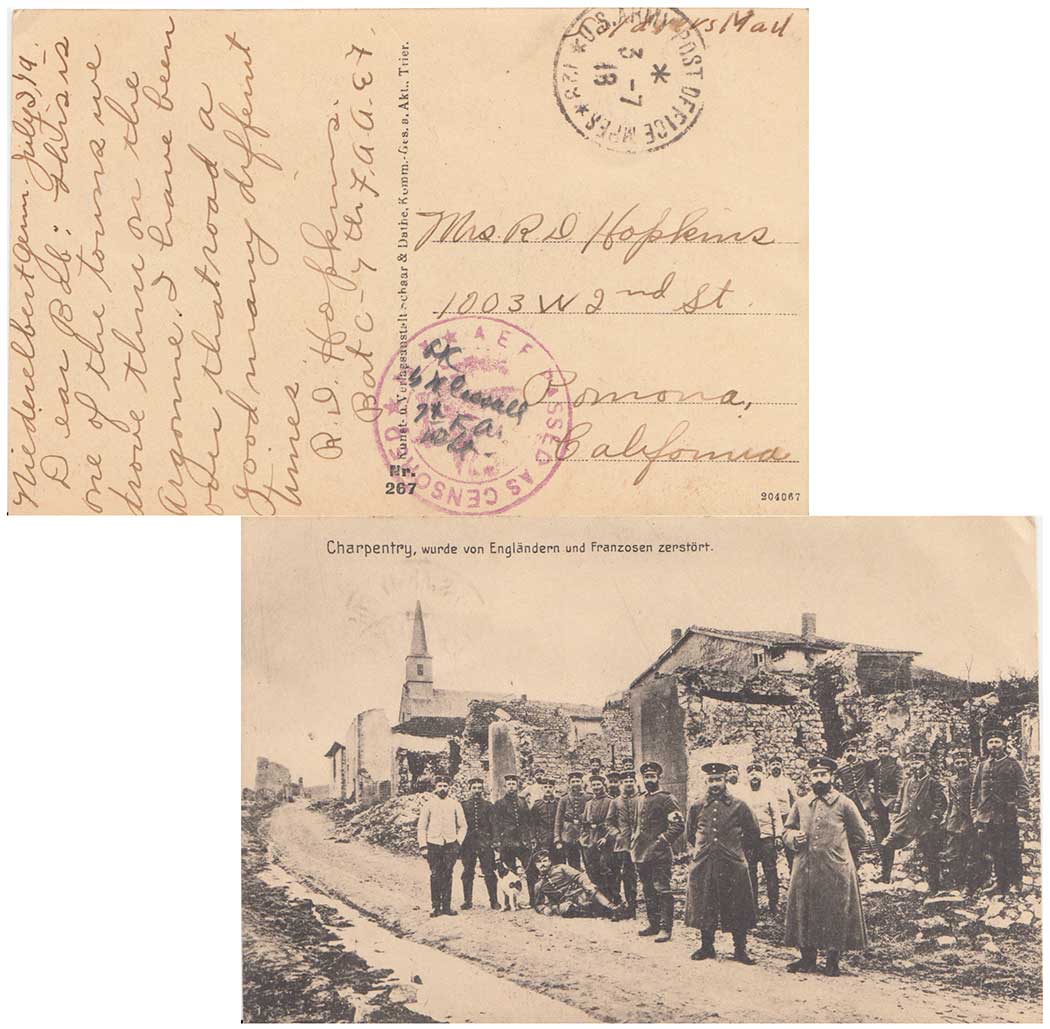 Niederelbert Germ. July 2 19.
Dear Bab: This is
one of the towns we
drove thru on the
Argonne. I have been
over that road a
good many diffent
times
R. D. Hopkins
Bat C- 7th F.A. A.E.F.
Kunst- u. Verlagsanstalt Schaar & Dathe, Komm.-Ges. a. Akt., Trier.
Nr.
267
Mail
* U.S. ARMY POST OFFICE MPES * 728
*
3-7
19
Mrs. R D Hopkins
1003 W 2nd St.
Pomona,
California
A E F PASSED AS CENSORED
OK
7th F.A.
204067
Charpentry, wurde von Engländern und Franzosen zerstört.